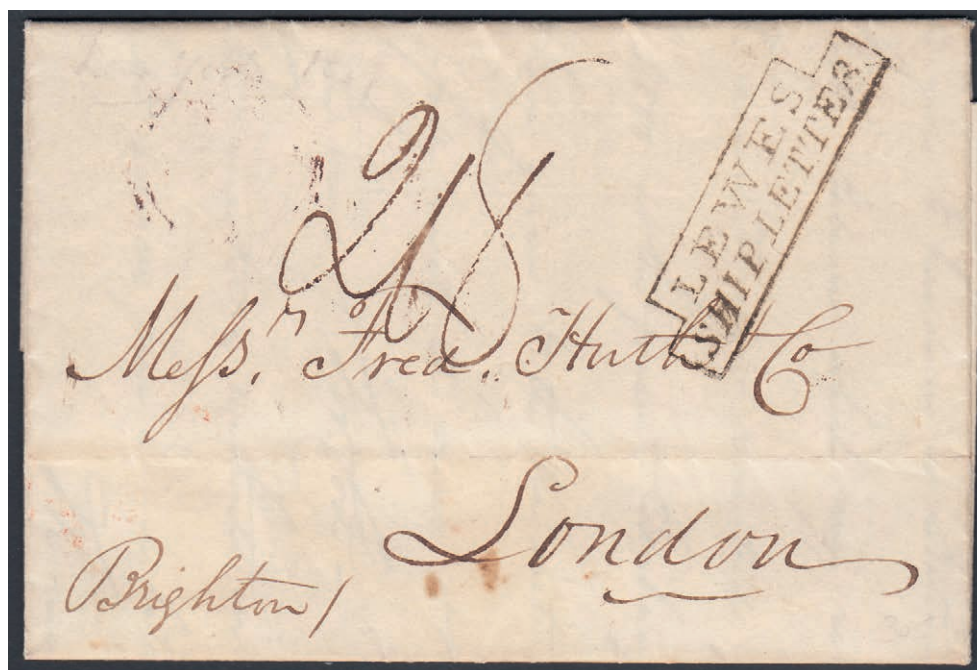 LEWES
SHIP LETTER
2/8
Messrs. Fred. Huth & Co
London
Brighton /